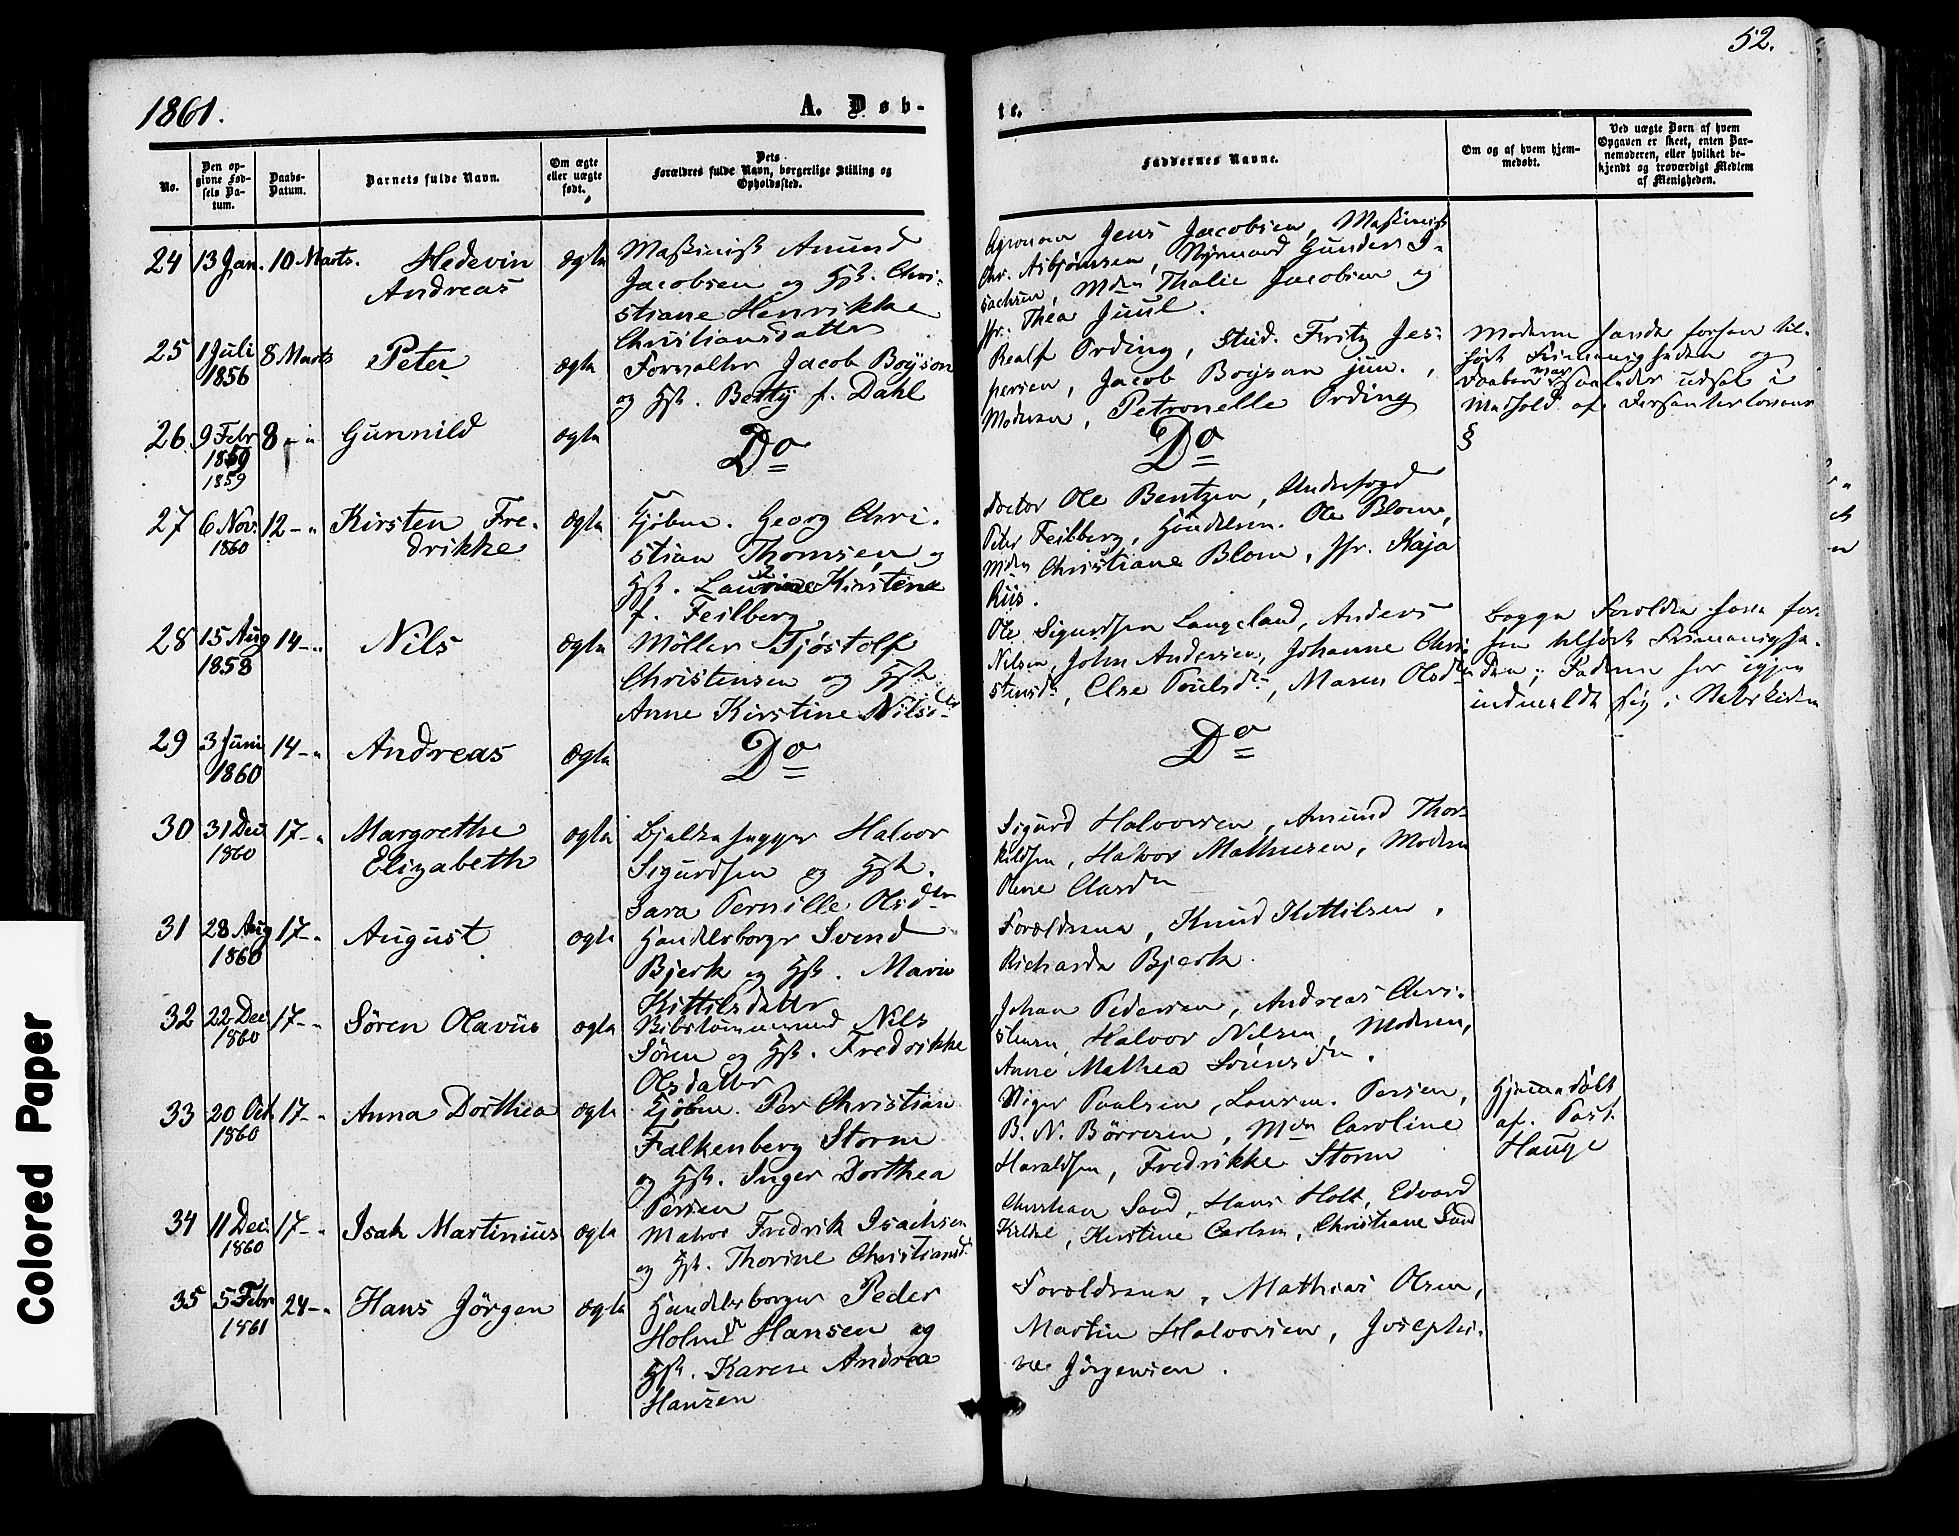 1861.
A. Døb-
te.
52.
No.
Den op-
givne Fød-
sels Da-
tum.
Daabs-
Datum.
Barnets fulde Navn.
Om ægte
eller uægte
født.
Dets
Forældres fulde Navn, borgerlige Stilling og
Opholdssted.
Faddernes Navne.
Om og af hvem hjem-
medøbt.
Ved uægte Børn af hvem
Opgaven er skeet, enten Bar-
nemoderen, eller hvilket be-
kjendt og troværdigt Medlem
af Menigheden.
24 13 Jan. 10 Marts. Hedevin
Andreas
ægte
Maskinist Amund
Jacobsen og Hst. Chri-
stiane Henrikke
Christiansdatter
Agronom Jens Jacobsen, Maskinist
Chr. Asbjørnsen, Styrmand Gunder I-
sachsen, Mdm Thalie Jacobsen og
Jfr. Thea Juul.
25 1 Juli
1856
8 Marts Peter ægte
Forvalter Jacob Boyson
og Hst. Betty f. Dahl
Realf Ording, Stud. Fritz Jes-
persen, Jacob Boyson jun.,
Moderen, Petronelle Ording
Moderen havde forhen til-
hørt Frimenigheden og
Daaben var saaledes udsat i
Medhold af Dissenterlovens
§
26 9 Febr
1859
1859
8 - " Gunnild ægte Do Do
27 6 Nov.
1860
12 - " Kirsten Fre-
drikke
ægte
Kjøbm. Georg Chri-
stian Thomsen og
Hst. Laurine Kirstene
f. Feilberg
Doctor Ole Bentzen, Underfogd
Peter Feilberg, Handelsm. Ole Blom,
Mdm Christiane Blom, Jfr. Kaja
Riis.
28 15 Aug
1858
14 - " Nils ægte
Møller Tjøstolf
Christensen og Hst.
Anne Kirstine Nilsdtr
Ole Sigurdsen Langeland, Anders
Nilsen, John Andersen, Johanne Chri-
stensdr, Else Poulsdr, Maren Olsdtr
Begge Forældre have for-
hen tilhørt Frimenighe-
den; Faderen har igjen
indmeldt sig i Statskirken
29 3 Juni
1860
14 - " Andreas ægte Do Do
30 31 Dec
1860
17 - " Margrethe
Elizabeth
ægte
Bjelkehugger Halvor
Sigurdsen og Hst.
Sara Pernille Olsdtr
Sigurd Halvorsen, Amund Thor-
kildsen, Halvor Mathisen, Moderen
Olene Clasdtr
31 28 Aug
1860
17 - " August ægte
Handelsborger Svend
Bjerk og Hst. Marie
Kittilsdatter
Forældrene, Knud Kittilsen,
Richarda Bjerk.
32 22 Dec
1860
17 - " Søren Olavus ægte
Skibstømmermand Nils
Søren og Hst. Fredrikke
Olsdatter
Johan Pedersen, Andreas Chri-
stensen, Halvor Nilsen, Moderen,
Anne Mathea Sørensdtr.
33 20 Oct
1860
17 - " Anna Dorthea ægte
Kjøbm. Per Christian
Falkenberg Storm
og Hst. Inger Dorthea
Persen
Viger Paulsen, Laurem. Persen,
B. N. Börresen, Mdm Caroline
Haraldsen, Fredrikke Storm
Hjemmedøbt
af Past.
Hauge
34 11 Dec.
1860
17 - " Isak Martinius ægte
Matros Fredrik Isachsen
og Hst. Thorine Christiansd
Christian Sand, Hans Holt, Edvard
Kildal, Kirstine Carlsen, Christiane Sand
35 5 Febr
1861
24 - " Hans Jörgen ægte
Handelsborger Peder
Holm Hansen og
Hst. Karen Andrea
Hansen
Forældrene, Mathias Olsen,
Martin Halvorsen, Josephi-
ne Jörgensen.
Colored Paper